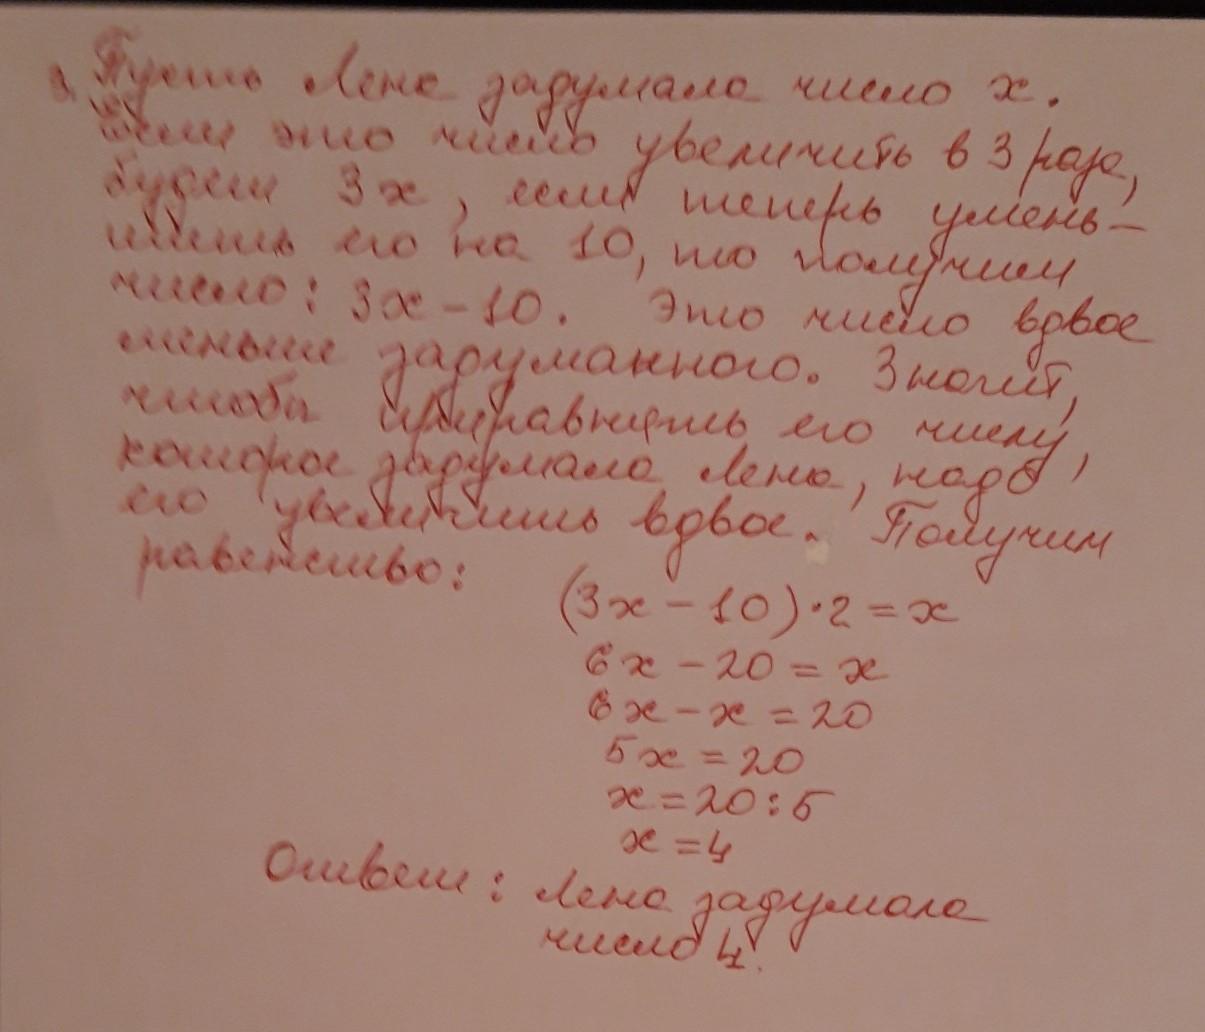 3. Пусть Лена задумала число x.
Если это число увеличить в 3 раза,
будет 3x, если теперь умень-
шить его на 10, то получим
число: 3x - 10. Это число вдвое
меньше задуманного. Значит,
чтобы приравнять его числу,
которое задумала Лена, надо
его увеличить вдвое. Получим
равенство:
(3x - 10) · 2 = x
6x - 20 = x
6x - x = 20
5x = 20
x = 20 : 5
x = 4
Ответ: Лена задумала
число 4.